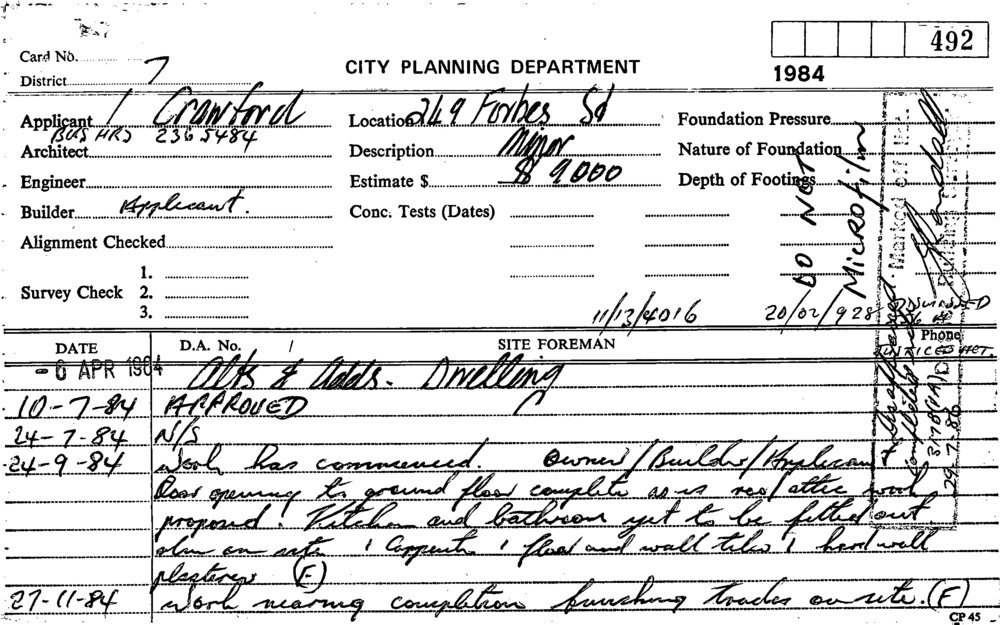 492
Card No.
7
CITY PLANNING DEPARTMENT
1984
District
Applicant Crawford
Location 249 Forbes St
Foundation Pressure
BUS HRS 2365484
Architect
Description Minor
Nature of Foundation
Engineer
Estimate $ $ 9,000
Depth of Footings
Builder Applicant.
Conc. Tests (Dates)
Alignment Checked
DO NOT
MICROfilm
Survey Check
1.
2.
3.
11/13/4016
20/02/928
DATE
D.A. No. /
SITE FOREMAN
Phone
- 6 APR 1984
Alts & Adds. Dwelling
10-7-84 APPROVED
24-7-84 N/S
24-9-84 Work has commenced. Owner/Builder/Applicant
Door opening to ground floor complete as is attic work
proposed. Kitchen and bathroom yet to be fitted out
on site 1 Carpenter 1 floor and wall tiler 1 hard wall
plasterer (F)
27-11-84 Work nearing completion finishing trades on site. (F)
Marked off
29-7-86
CP 45